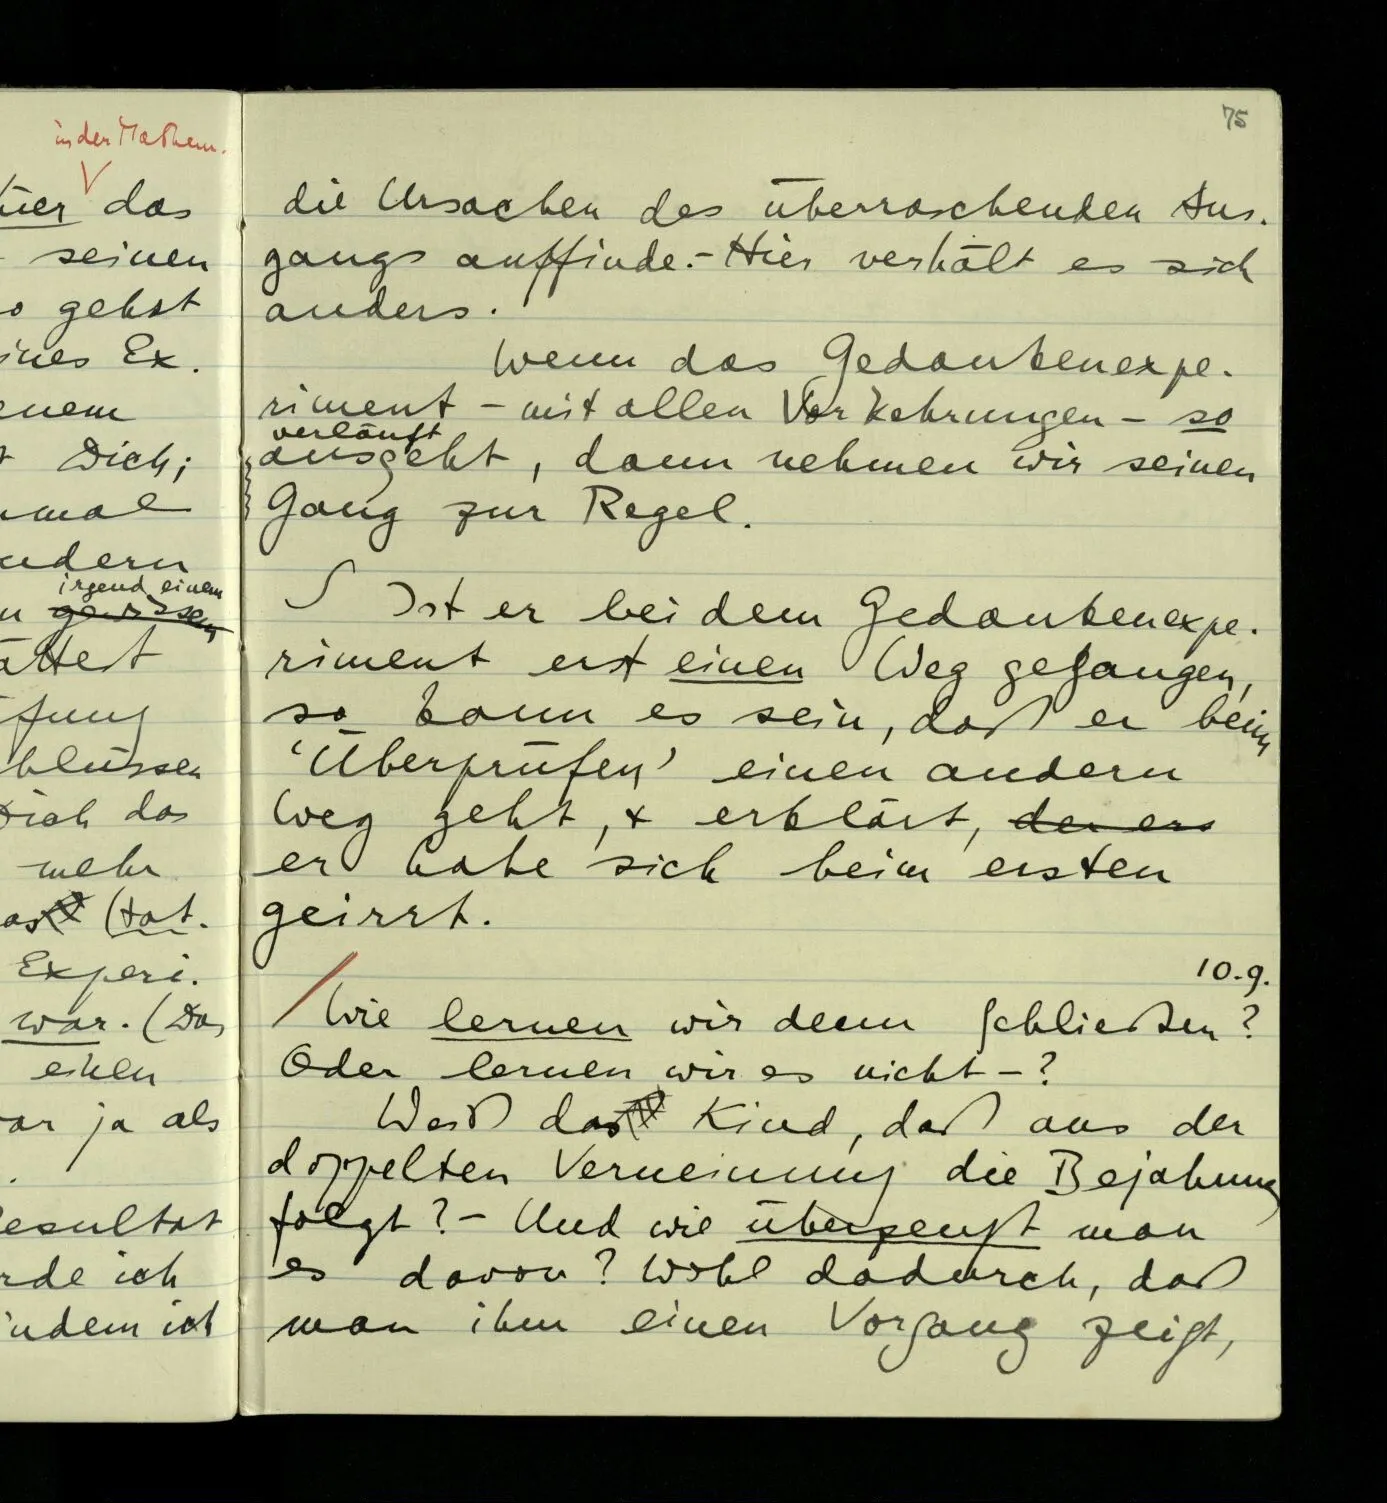 in der Mathem.
hier das
seinen
gehst
ines Ex.
enem
Dich;
mal
ndern
irgend einem
gewissen
attet
fung
hlüssen
Dich das
mehr
das (tat.
Experi.
war. (Das
einen
war ja als
Resultat
rde ich
indem ich
75
die Ursachen des überraschenden Aus.
gangs auffinde. – Hier verhält es sich
anders.
Wenn das Gedankenexpe.
riment – mit allen Vorkehrungen – so
verläuft
ausgeht, dann nehmen wir seinen
Gang zur Regel.
S Ist er bei dem Gedankenexpe.
riment erst einen Weg gegangen,
so kann es sein, daß er beim
'Überprüfen' einen andern
Weg geht, & erklärt, der ers
er habe sich beim ersten
geirrt.
10.9.
/ Wie lernen wir denn schließen?
Oder lernen wir es nicht – ?
Weiß das Kind, daß aus der
doppelten Verneinung die Bejahung
folgt? – Und wie überzeugt man
es davon? Wohl dadurch, daß
man ihm einen Vorgang zeigt,